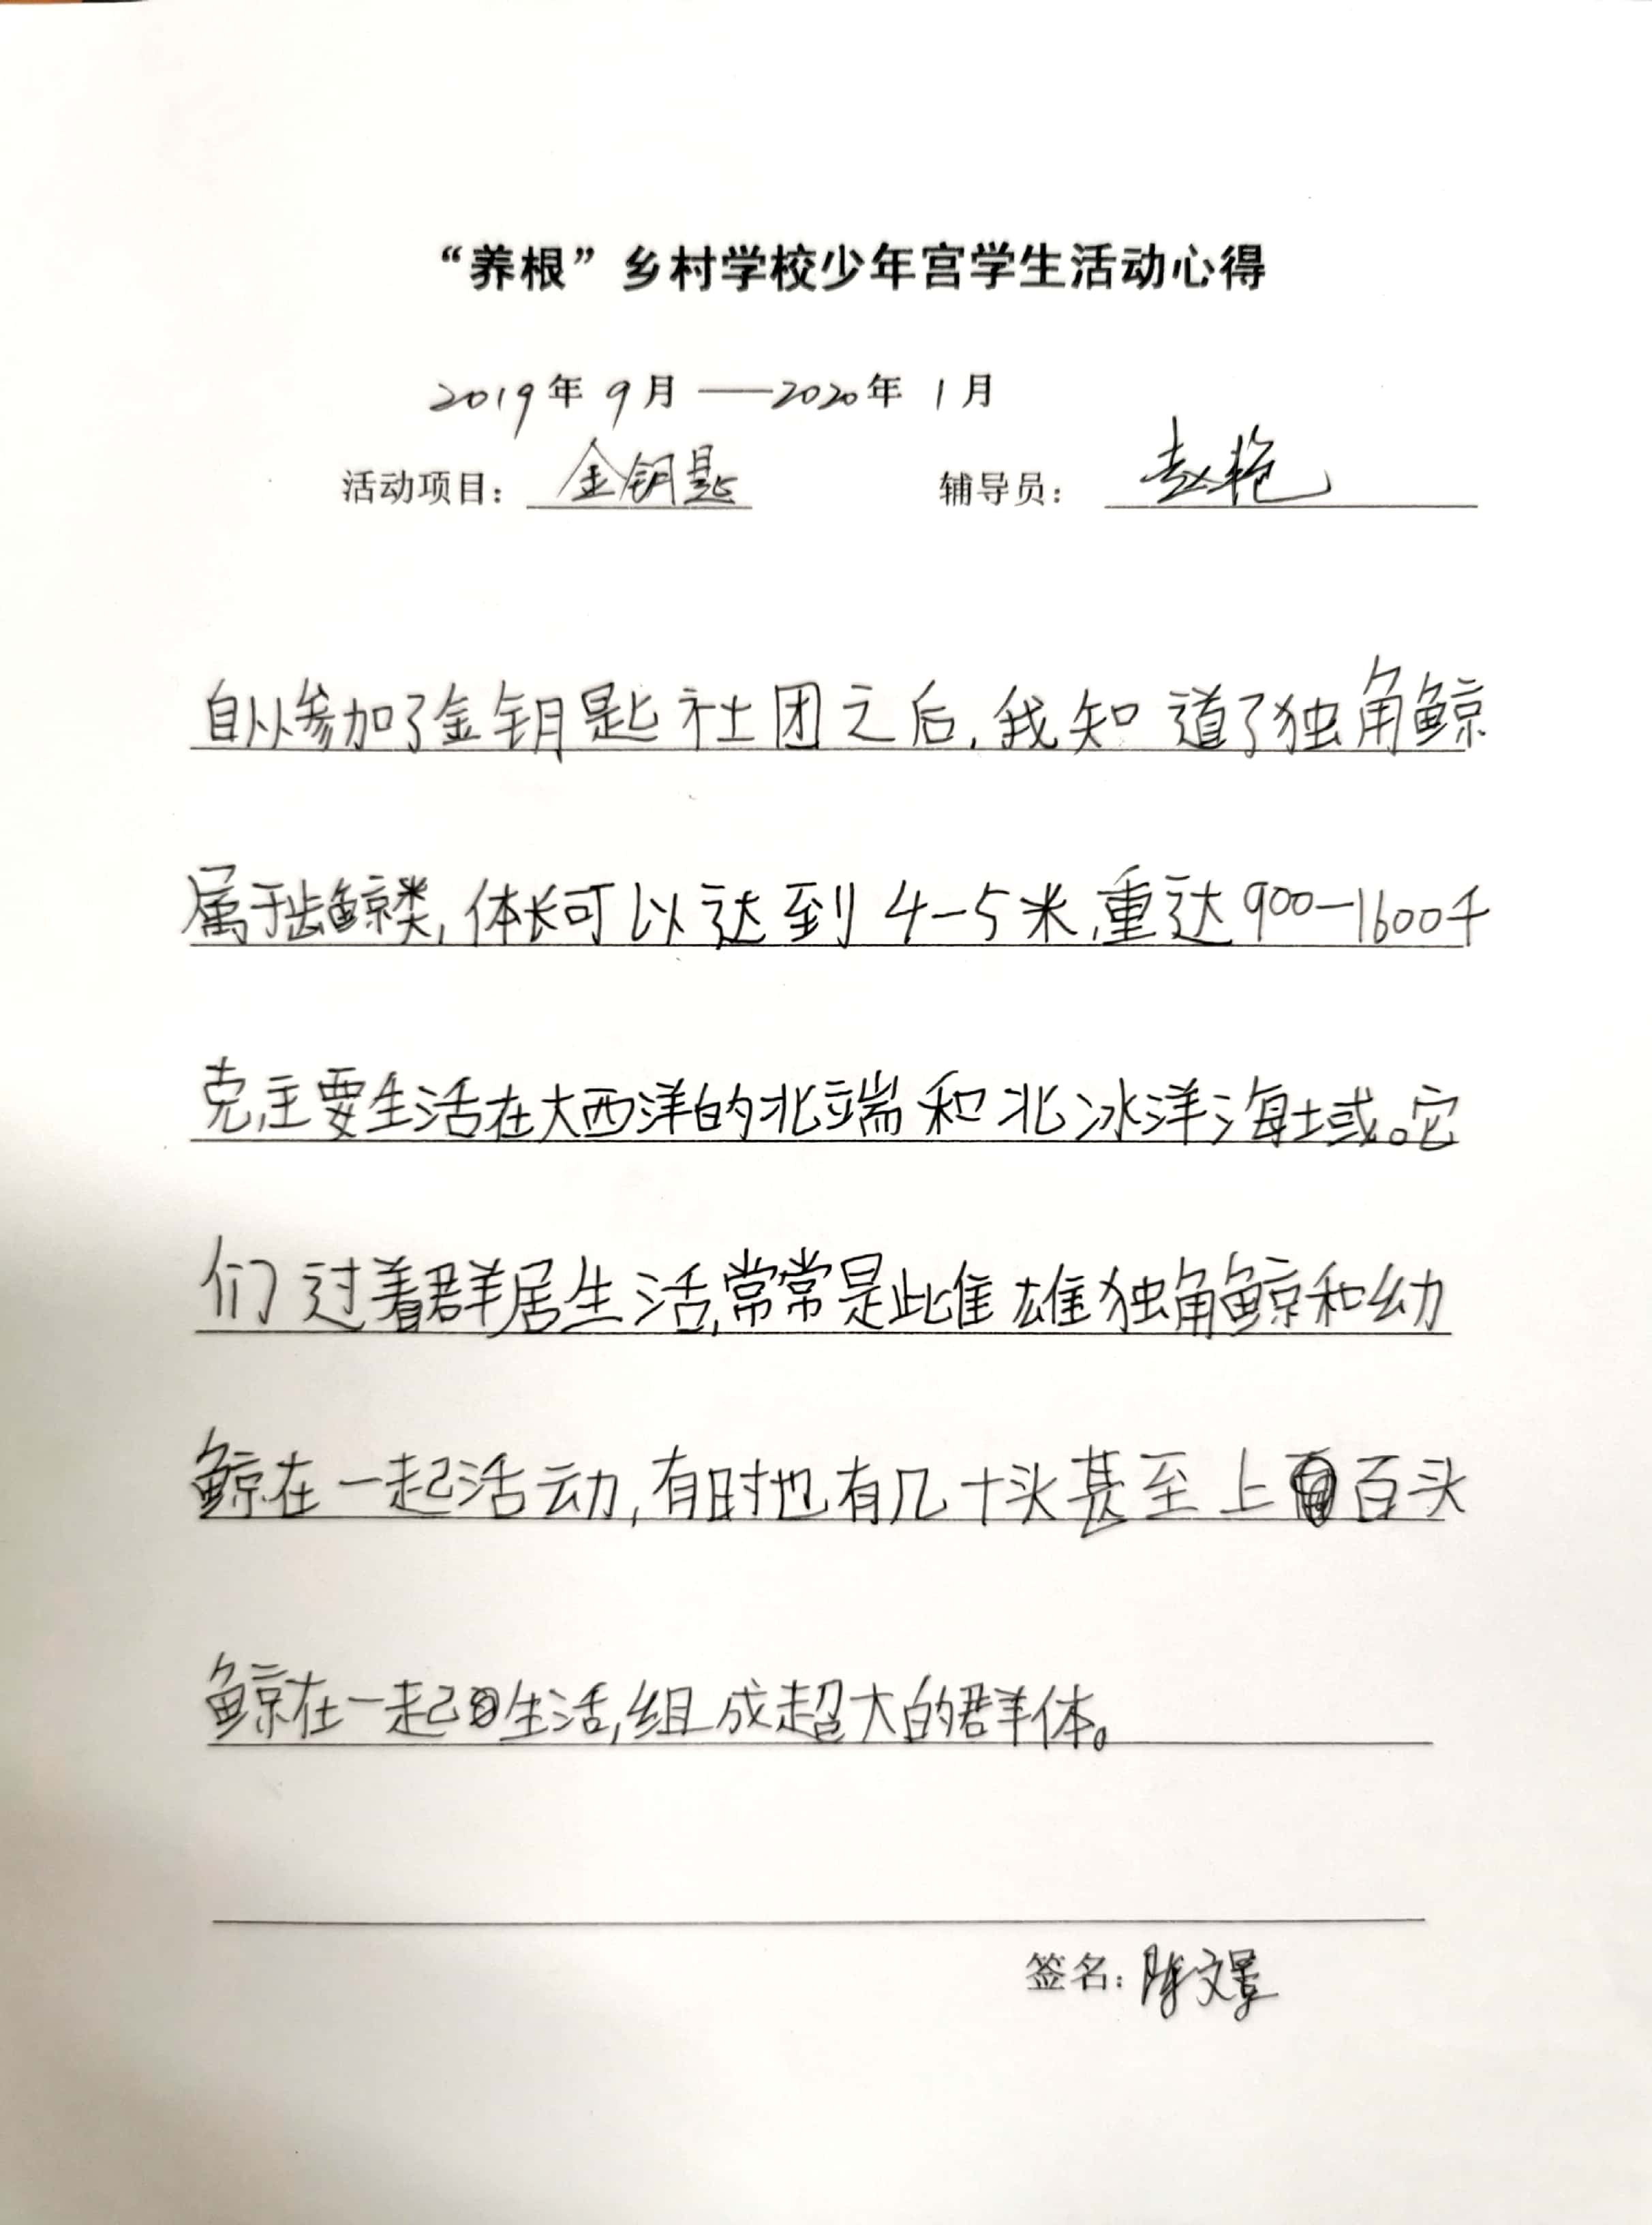 “养根”乡村学校少年宫学生活动心得
2019年 9月 ——2020年 1月
活动项目：金钥匙 辅导员：赵艳
自从参加了金钥匙社团之后，我知道了独角鲸
属于齿鲸类，体长可以达到4-5米，重达900-1600千
克，主要生活在大西洋的北端和北冰洋海域。它
们过着群居生活，常常是雌雄独角鲸和幼
鲸在一起活动，有时也有几十头甚至上百头
鲸在一起生活，组成超大的群体。
签名：陈文景